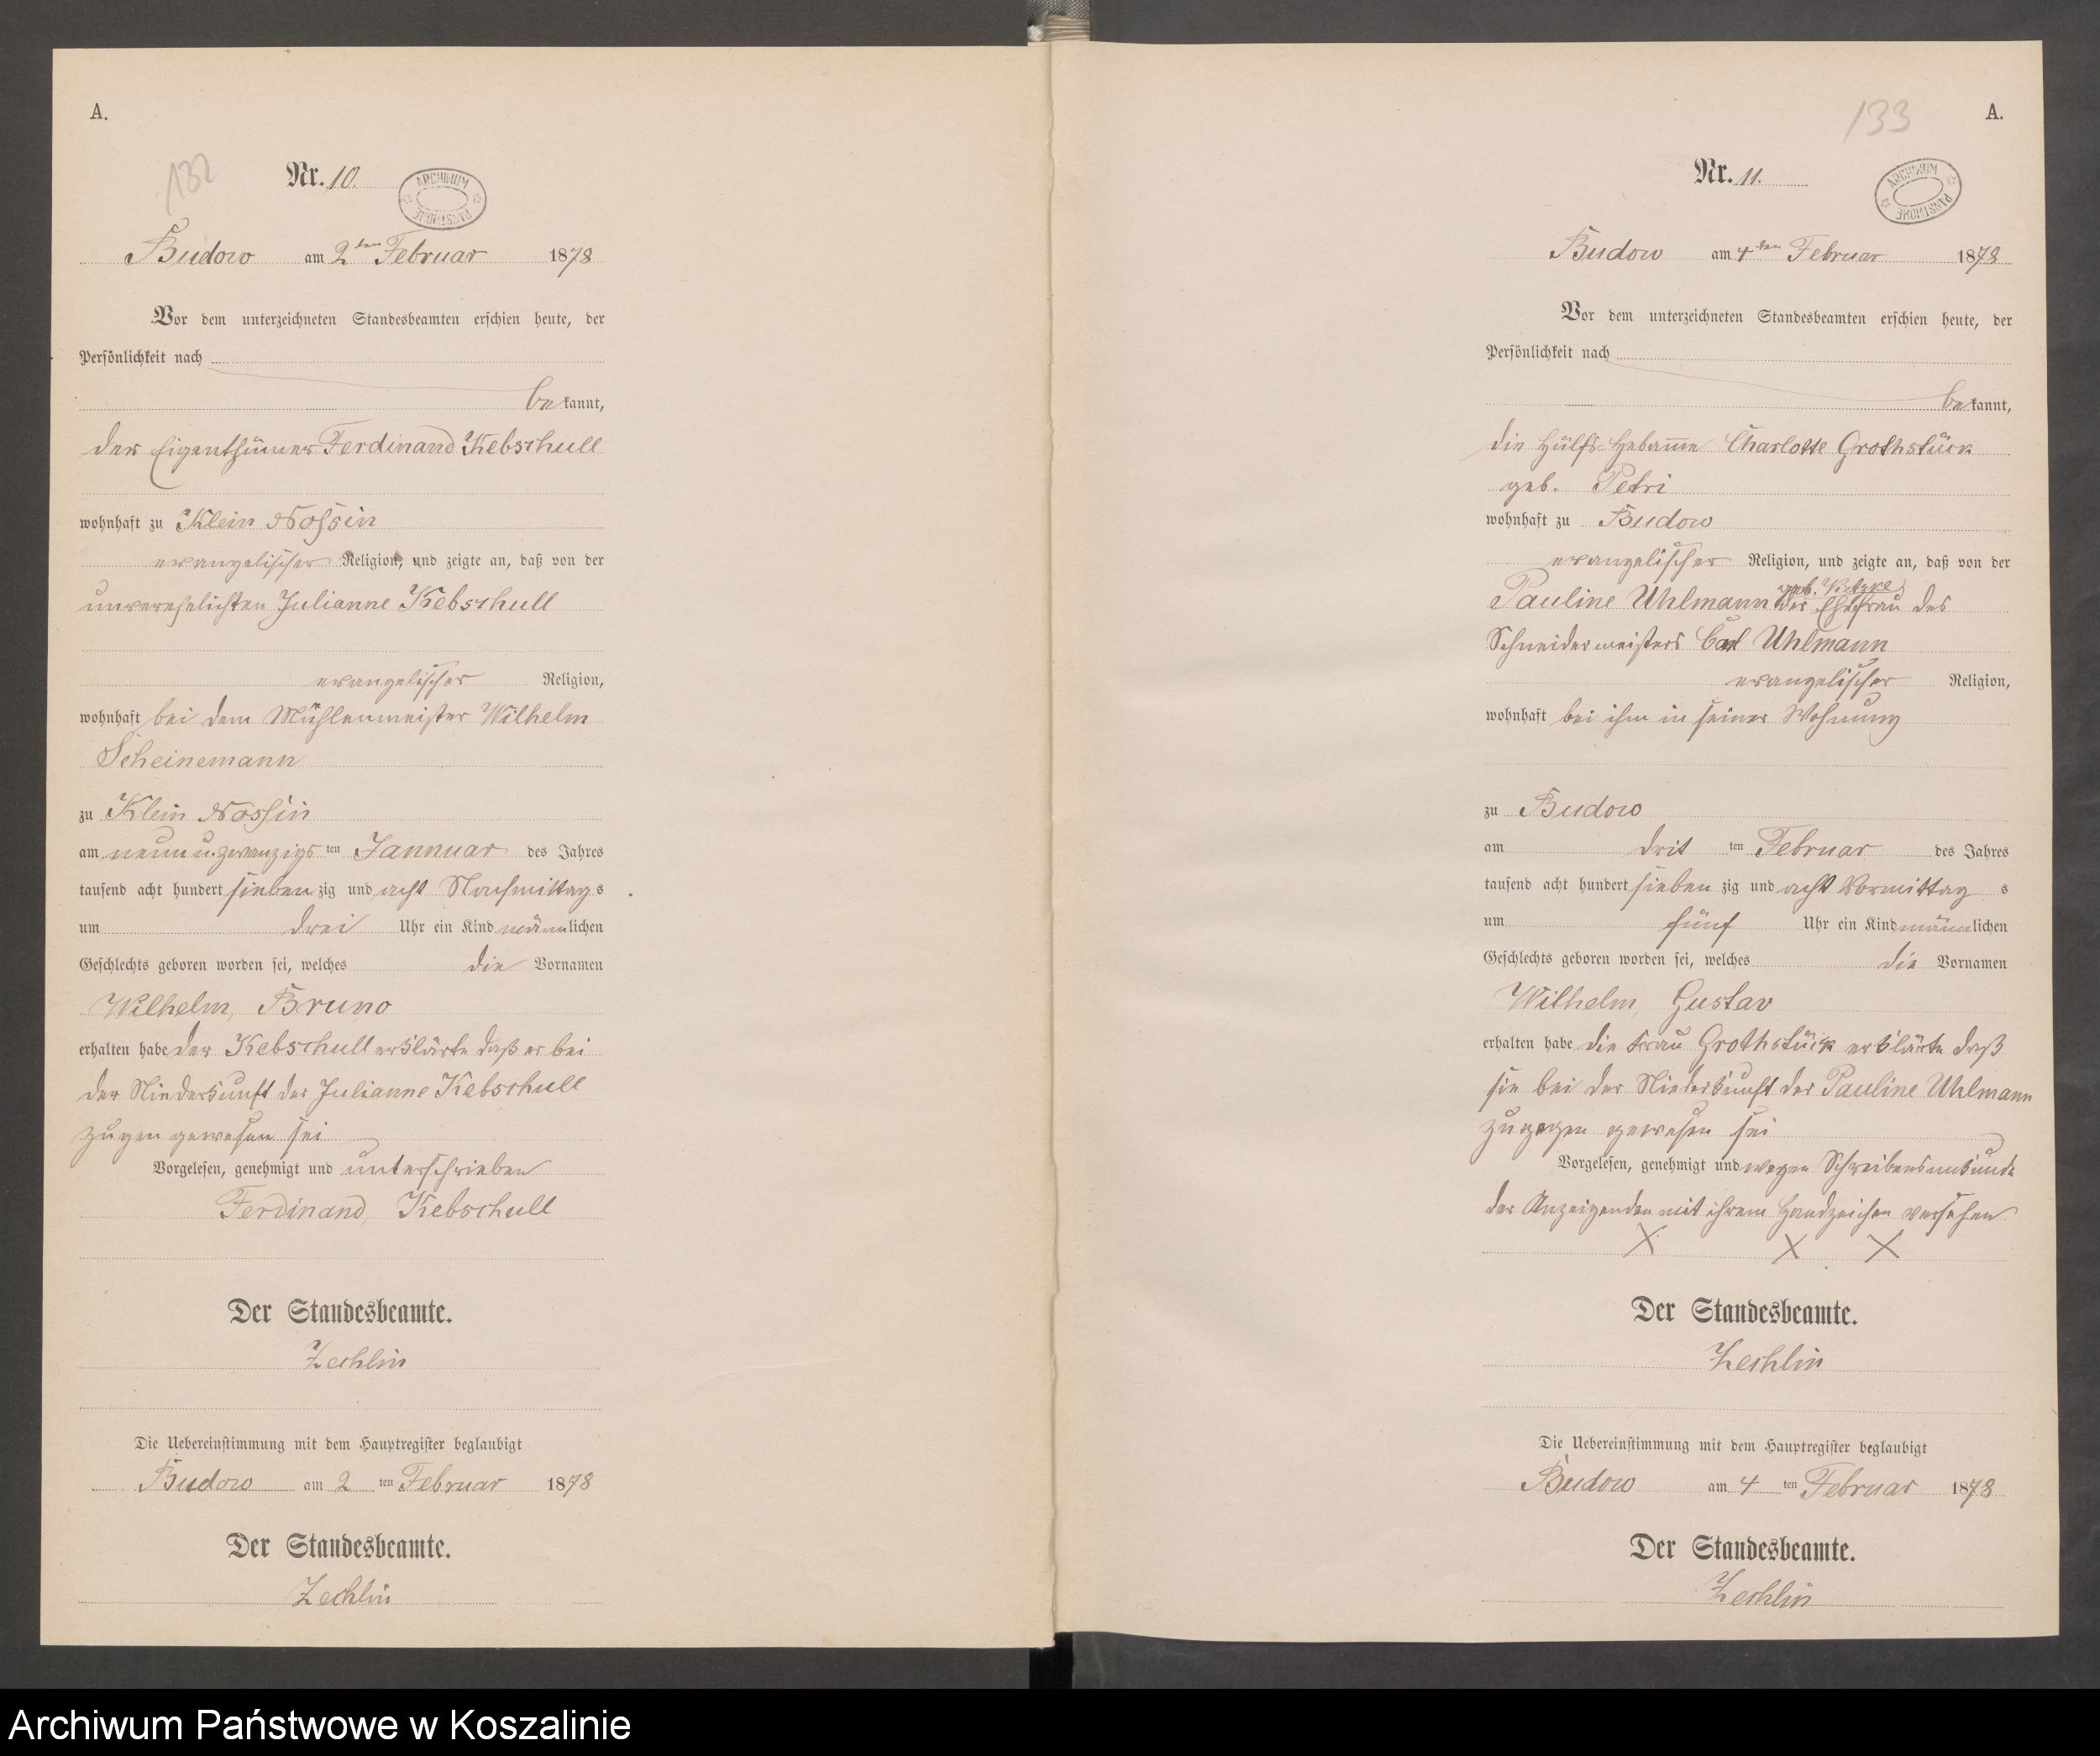 A.
132
Nr. 10.
ARCHIWUM PAŃSTWOWE
Budow am 2ten Februar 1878
Vor dem unterzeichneten Standesbeamten erschien heute, der
Persönlichkeit nach
bekannt,
der Eigenthümer Ferdinand Kebschull
wohnhaft zu Klein Nossin
evangelischer Religion, und zeigte an, daß von der
unverehelichten Julianne Kebschull
evangelischer Religion,
wohnhaft bei dem Mühlenmeister Wilhelm
Scheinemann
zu Klein Nossin
am neun u. zwanzigsten Jannuar des Jahres
tausend acht hundert siebenzig und acht Nachmittags
um drei Uhr ein Kind männlichen
Geschlechts geboren worden sei, welches die Vornamen
Wilhelm, Bruno
erhalten habe der Kebschull erklärte daß er bei
der Niederkunft der Julianne Kebschull
zugen gewesen sei
Vorgelesen, genehmigt und unterschrieben
Ferdinand Kebschull
Der Standesbeamte.
Zechlin
Die Uebereinstimmung mit dem Hauptregister beglaubigt
Budow am 2 ten Februar 1878
Der Standesbeamte.
Zechlin
133
A.
Nr. 11.
ARCHIWUM PAŃSTWOWE
Budow am 4ten Februar 1878
Vor dem unterzeichneten Standesbeamten erschien heute, der
Persönlichkeit nach
bekannt,
die Hülfs-Hebamme Charlotte Grothstück
geb. Petri
wohnhaft zu Budow
evangelischer Religion, und zeigte an, daß von der
geb.
Pauline Uhlmann der Ehefrau des
Schneidermeisters Carl Uhlmann
evangelischer Religion,
wohnhaft bei ihm in seiner Wohnung
zu Budow
am drit ten Februar des Jahres
tausend acht hundert sieben zig und acht Vormittag s
um fünf Uhr ein Kind männlichen
Geschlechts geboren worden sei, welches die Vornamen
Wilhelm, Gustav
erhalten habe die Frau Grothstück erklärte daß
sie bei der Niederkunft der Pauline Uhlmann
zugegen gewesen sei
Vorgelesen, genehmigt und wegen Schreibensunkunde
der Anzeigenden mit ihrem Handzeichen versehen
X X X
Der Standesbeamte.
Zechlin
Die Uebereinstimmung mit dem Hauptregister beglaubigt
Budow am 4 ten Februar 1878
Der Standesbeamte.
Zechlin
Archiwum Państwowe w Koszalinie